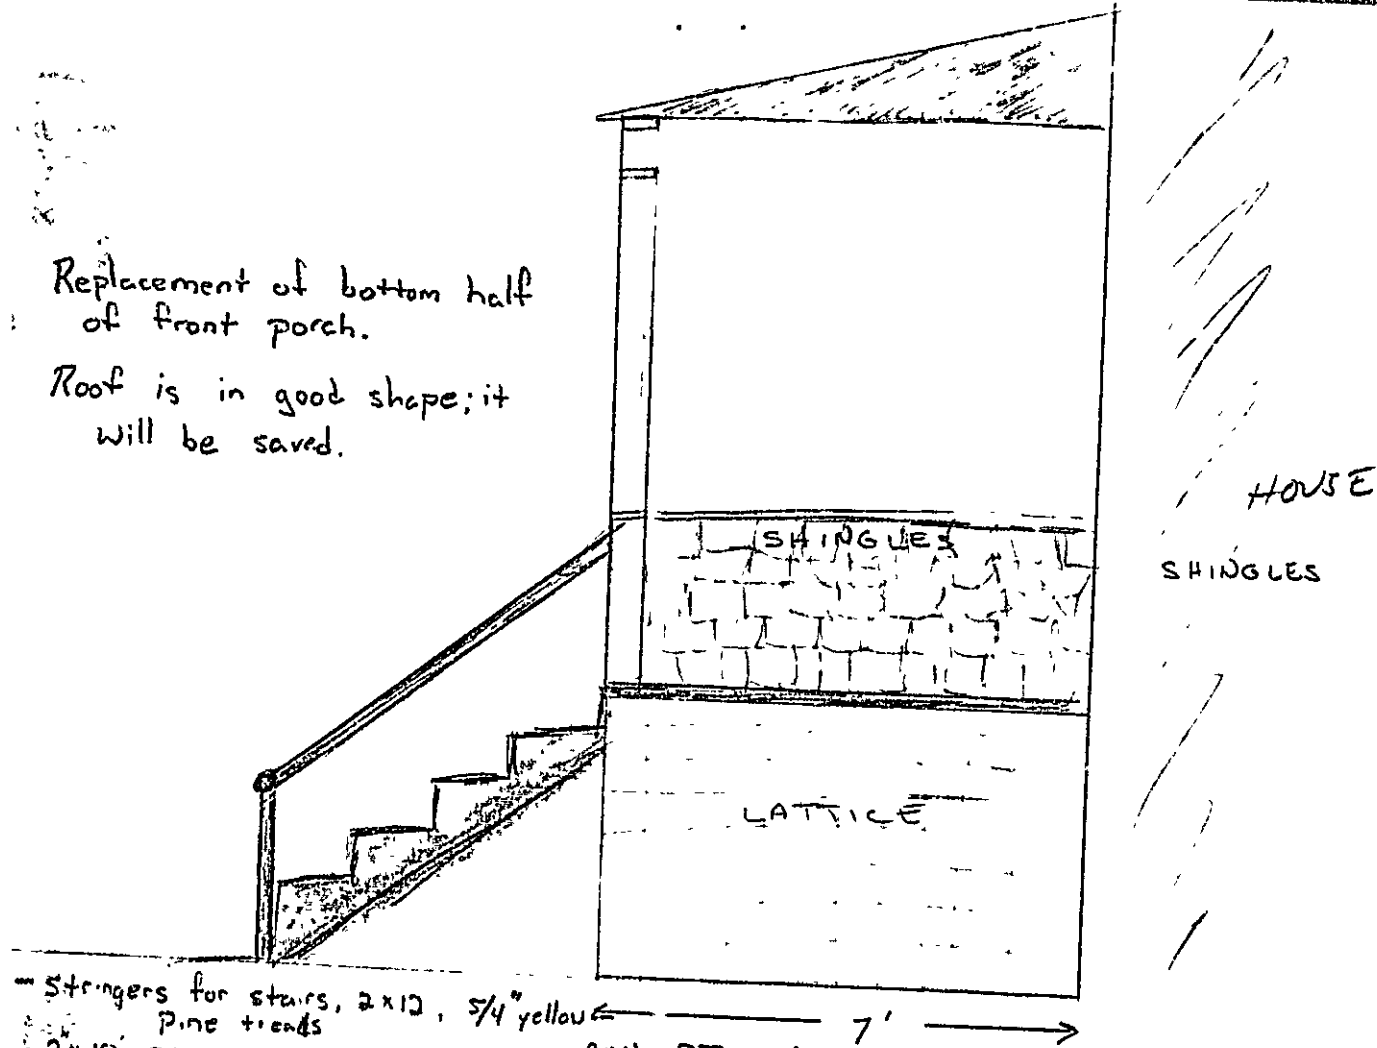 Replacement of bottom half
of front porch.
Roof is in good shape; it
will be saved.
SHINGLES
HOUSE
SHINGLES
LATTICE
- Stringers for stairs, 2x12, 5/4" yellow
pine treads
7'